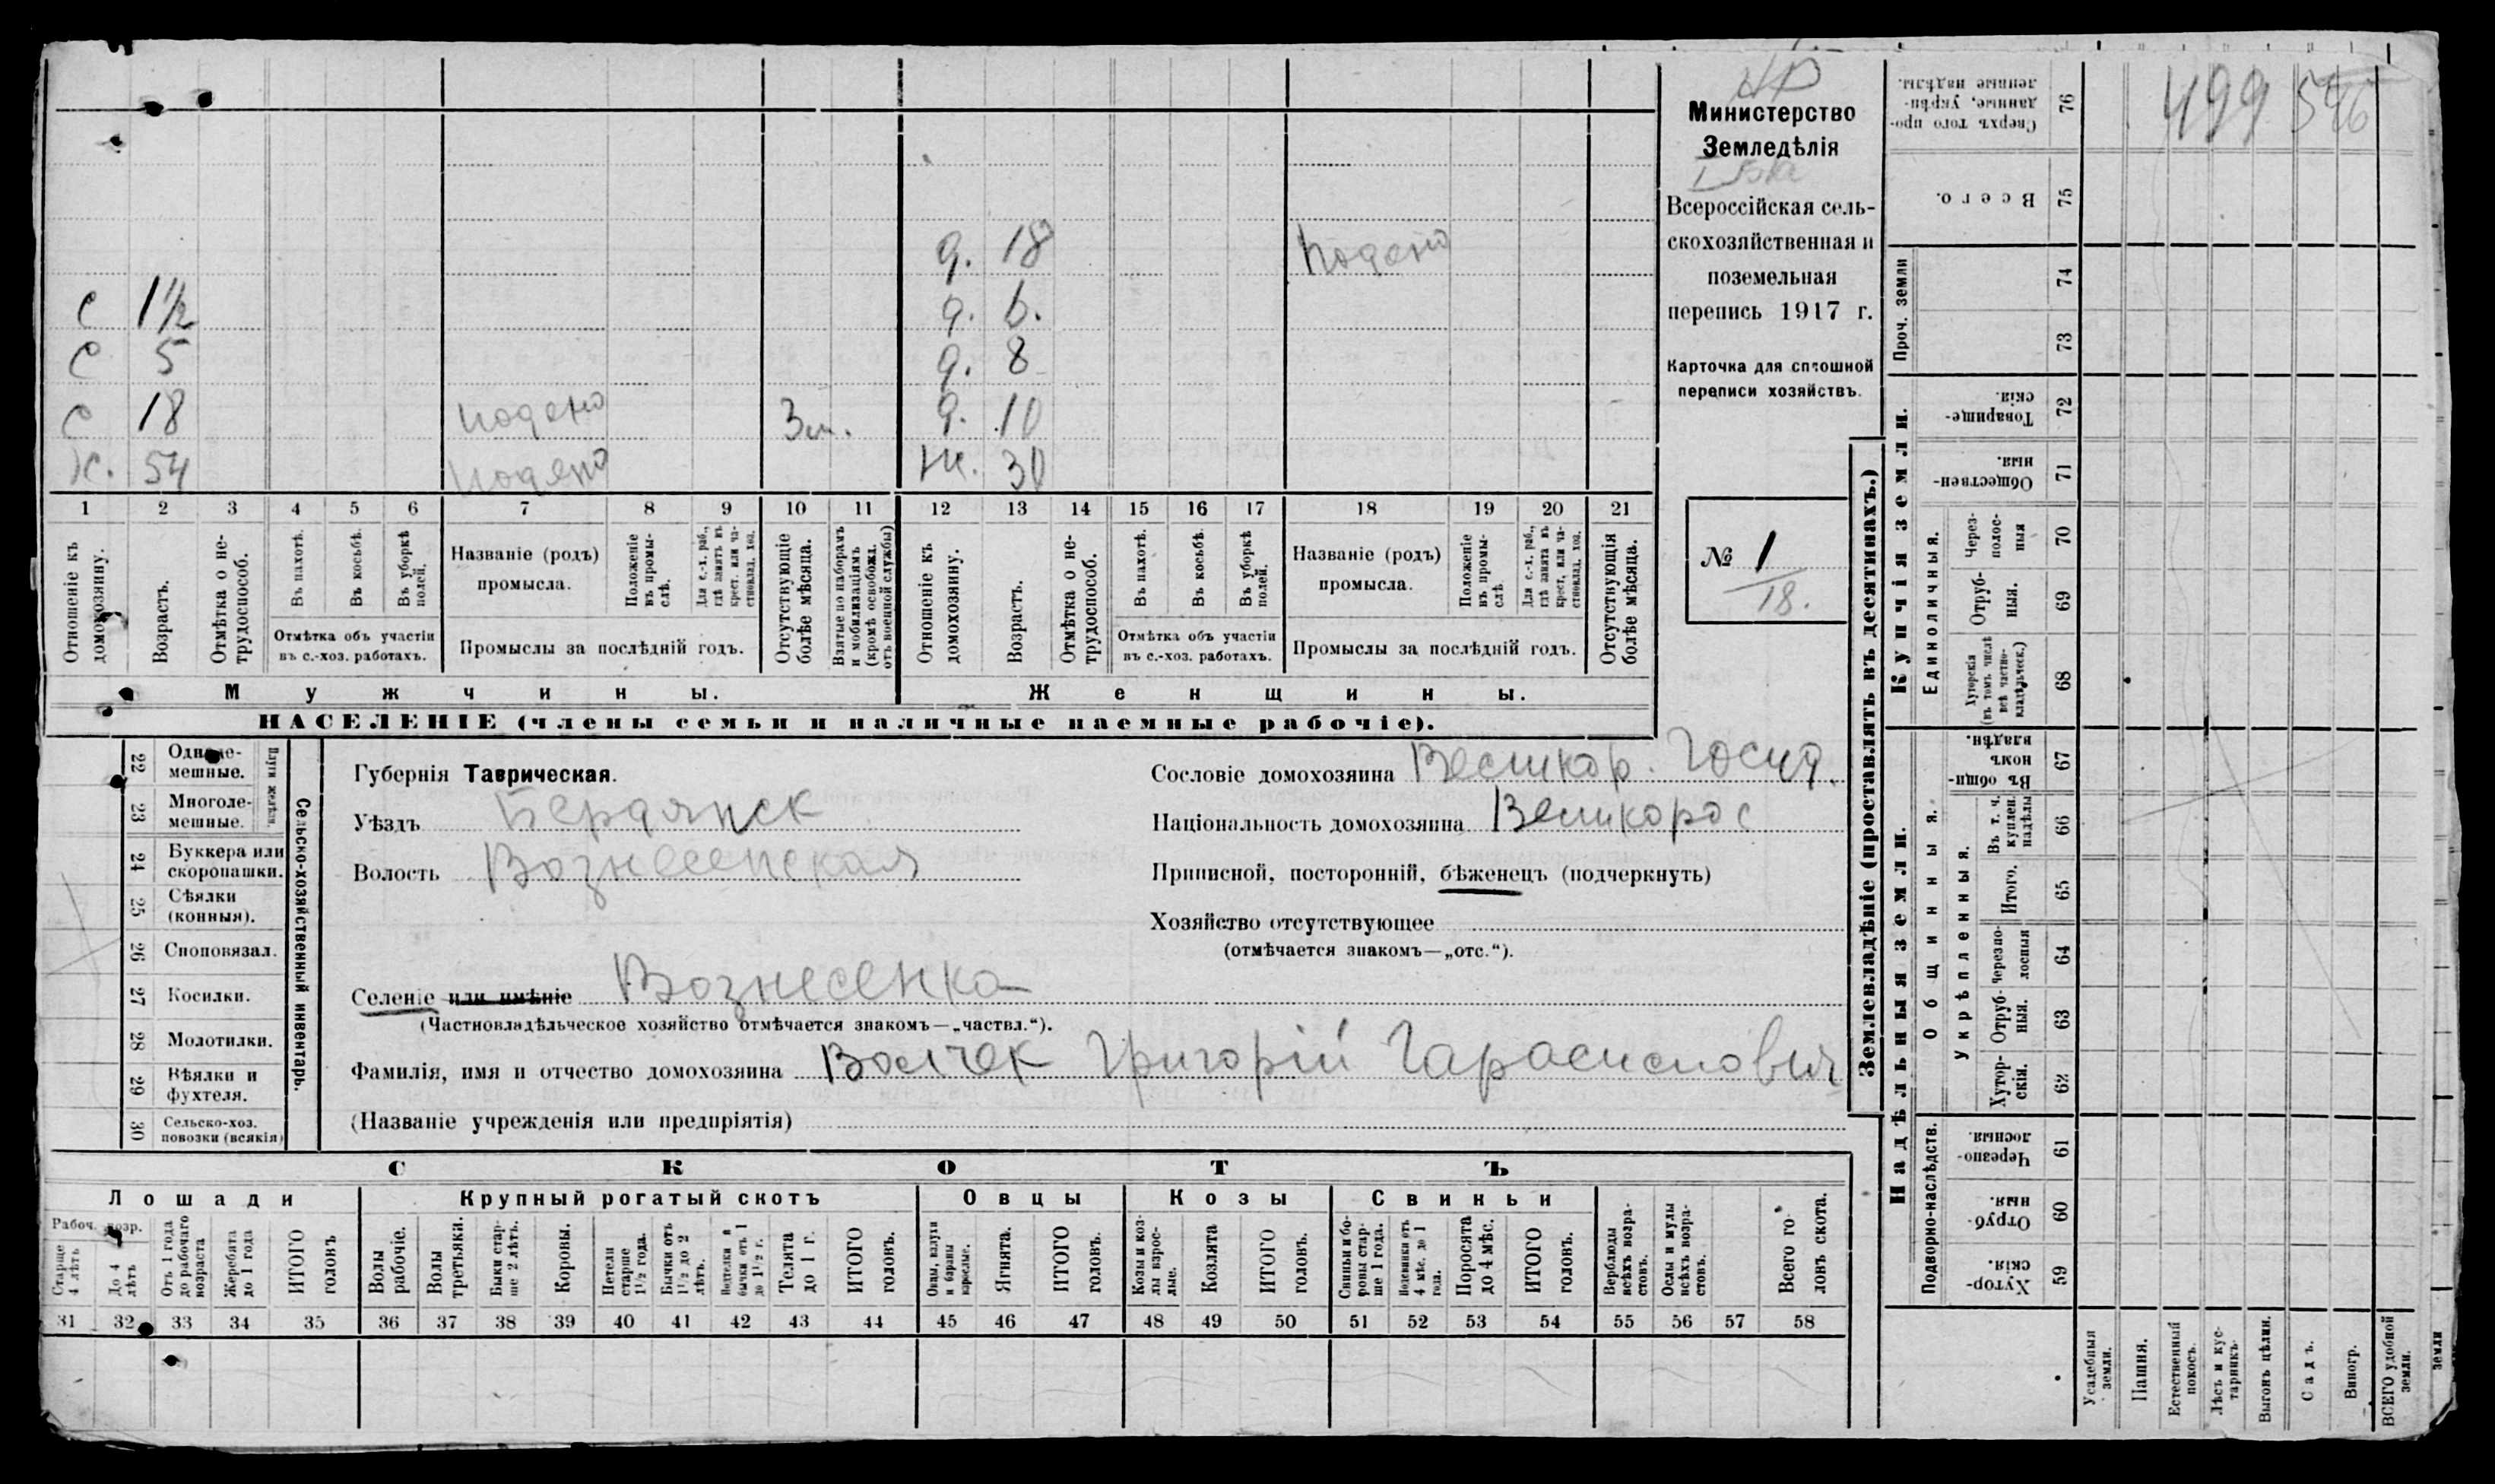 499 546
Министерство
Земледѣлія
Всероссійская сель-
скохозяйственная и
поземельная
перепись 1917 г.
Карточка для сплошной
переписи хозяйствъ.
№ 1
18.
д. 18 подено
с 1½ д. 6.
с 5 д. 8
с 18 подено 3 м. д. 10
х. 54 подено ж. 30
1 2 3 4 5 6 7 8 9 10 11 12 13 14 15 16 17 18 19 20 21
Отношеніе къ домохозяину.
Возрастъ.
Отмѣтка о не-трудоспособ.
Въ пахотѣ.
Въ косьбѣ.
Въ уборкѣ полей.
Отмѣтка объ участіи
въ с.-хоз. работахъ.
Названіе (родъ)
промысла.
Положеніе въ промы-слѣ.
Для с.-х. раб., гдѣ занятъ въ крест. или ча-стновлад. хоз.
Промыслы за послѣдній годъ.
Отсутствующіе болѣе мѣсяца.
Взятые по наборамъ и мобилизаціямъ (кромѣ освобожд. отъ военной службы)
Отношеніе къ домохозяину.
Возрастъ.
Отмѣтка о не-трудоспособ.
Въ пахотѣ.
Въ косьбѣ.
Въ уборкѣ полей.
Отмѣтка объ участіи
въ с.-хоз. работахъ.
Названіе (родъ)
промысла.
Положеніе въ промы-слѣ.
Для с.-х. раб., гдѣ занята въ крест. или ча-стновлад. хоз.
Промыслы за послѣдній годъ.
Отсутствующія болѣе мѣсяца.
Мужчины. Женщины.
НАСЕЛЕНІЕ (члены семьи и наличные наемные рабочіе).
Сельско-хозяйственный инвентарь.
Плуги желѣзн.
22 Одноле-мешные.
23 Многоле-мешные.
24 Буккера или скоропашки.
25 Сѣялки (конныя).
26 Сноповязал.
27 Косилки.
28 Молотилки.
29 Вѣялки и фухтеля.
30 Сельско-хоз. повозки (всякія)
Губернія Таврическая.
Уѣздъ Бердянск
Волость Вознесенская
Селеніе или имѣніе Вознесенка
(Частновладѣльческое хозяйство отмѣчается знакомъ—„частвл.“).
Фамилія, имя и отчество домохозяина Волчек Григорій
(Названіе учрежденія или предпріятія)
Сословіе домохозяина
Національность домохозяина Великорос
Приписной, посторонній, бѣженецъ (подчеркнуть)
Хозяйство отсутствующее
(отмѣчается знакомъ—„отс.“).
СКОТЪ
Лошади Крупный рогатый скотъ Овцы Козы Свиньи
Рабоч. возр.
Старше 4 лѣтъ
До 4 лѣтъ
Отъ 1 года до рабочаго возраста
Жеребята до 1 года
ИТОГО головъ
Волы рабочіе.
Волы третьяки.
Быки стар-ше 2 лѣтъ.
Коровы.
Нетели старше 1½ года.
Бычки отъ 1½ до 2 лѣтъ.
Подтелки и бычки отъ 1 до 1½ г.
Телята до 1 г.
ИТОГО головъ.
Овцы, валухи и бараны взрослые.
Ягнята.
ИТОГО головъ.
Козы и коз-лы взрос-лые.
Козлята
ИТОГО головъ.
Свиньи и бо-ровы стар-ше 1 года.
Подсвинки отъ 4 мѣс. до 1 года.
Поросята до 4 мѣс.
ИТОГО головъ.
Верблюды всѣхъ возра-стовъ.
Ослы и мулы всѣхъ возра-стовъ.
Всего го-ловъ скота.
31 32 33 34 35 36 37 38 39 40 41 42 43 44 45 46 47 48 49 50 51 52 53 54 55 56 57 58
Землевладѣніе (проставлять въ десятинахъ.)
Сверхъ того про-данные, укрѣп-ленные надѣлы. 76
Всего. 75
Проч. земли 74 73
Купчія земли.
Товарище-скія. 72
Обществен-ныя. 71
Единоличныя.
Через-полос-ныя 70
Отруб-ныя. 69
Хуторскія (въ томъ числѣ всѣ частно-владѣльческ.) 68
Надѣльныя земли.
Общинныя.
Въ общин-номъ владѣн. 67
Укрѣпленныя.
Въ т. ч. куплен. надѣлы 66
Итого. 65
Черезпо-лосныя 64
Отруб-ныя. 63
Хутор-скія. 62
Подворно-наслѣдств.
Черезпо-лосныя. 61
Отруб-ныя. 60
Хутор-скія. 59
Усадебныя земли.
Пашня.
Естественный покосъ.
Лѣсъ и кус-тарникъ
Выгонъ цѣлин.
Садъ.
Виногр.
ВСЕГО удобной земли.
земли